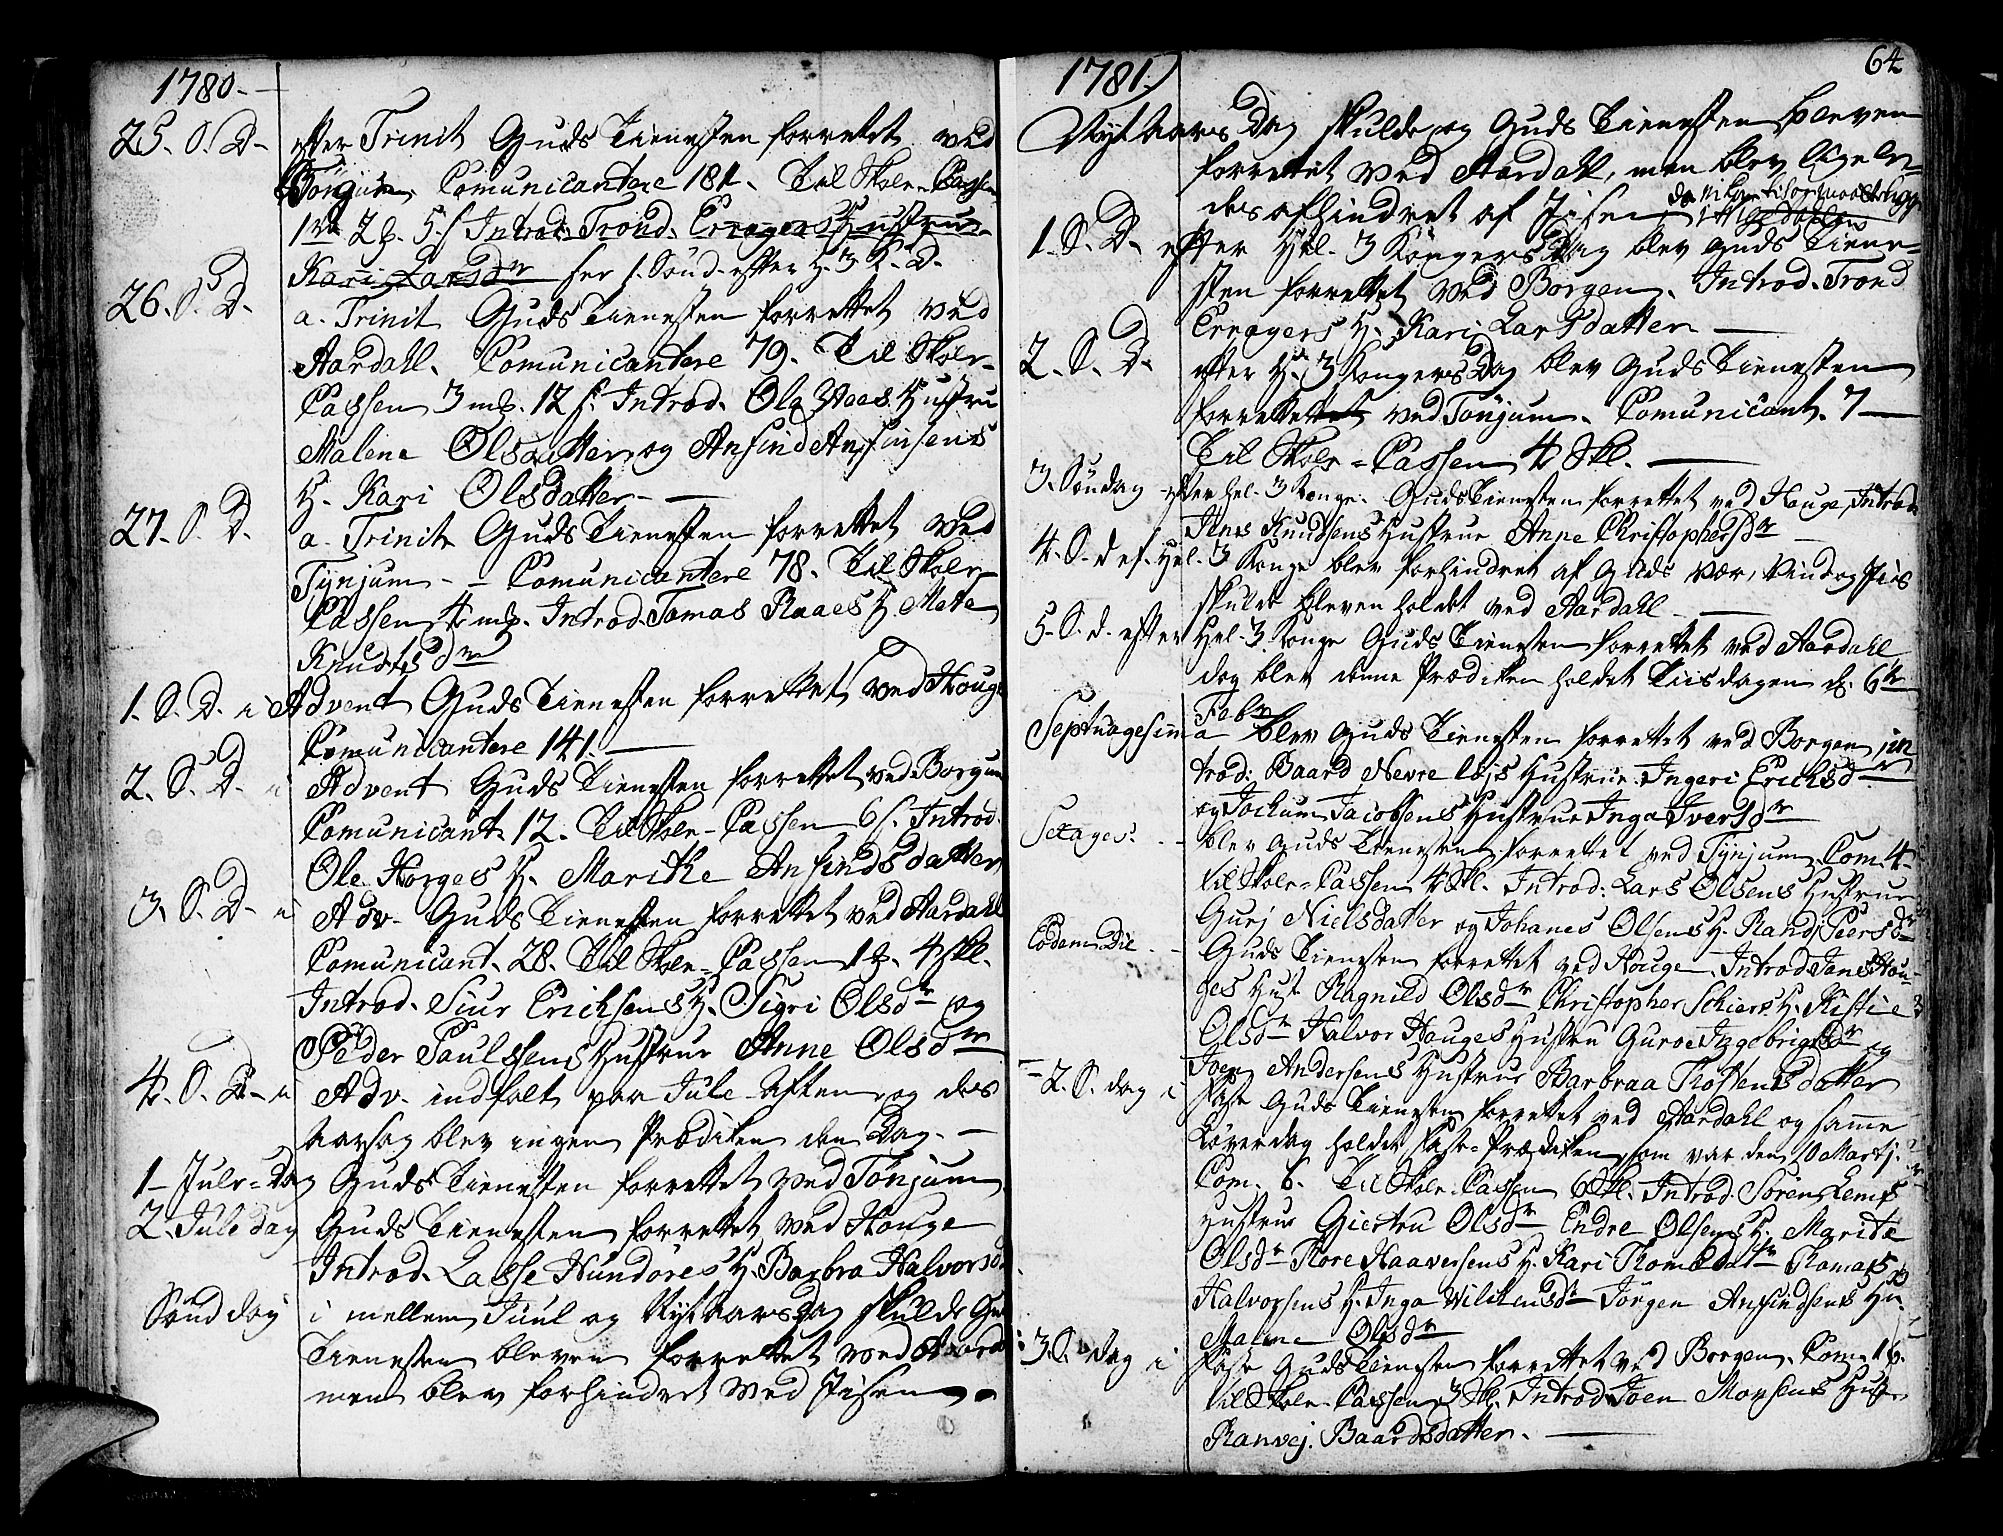 1780.
25. S. D. efter Trinit Guds Tienesten forrettet ved
Tönjum. Comunicantere 181. Til Skole-Cassen
1 rd 2 ß. 5 s Introd: Trond. Eragers Hustrue
Kari Larsdr ser 1. Sönd. efter H. 3 K. D.
26. S. D. a. Trinit Guds Tienesten forrettet ved
Aardahl. Comunicantere 79. Til Skole-
Cassen 3 mß. 12 s. Introd. Ola Naaes Hustru
Malene Olsdatter og Ansind Ansinsens
H. Kari Olsdatter
27. S. D. a. Trinit Guds Tienesten forrettet ved
Tynjum - - Comunicantere 78. Til Skole-
Cassen 4 mß. Introd. Tamas Raaes H Mate
Knudtsdr
1. S. D. i Advent Guds Tienesten forrettet ved Houge
Comunicantere 141.
2. S. D. i Advent Guds Tienesten forrettet ved Borgun
Comunicant. 12. Til Skole-Cassen 6 s. Introd.
Ole Horges H. Marithe Ansindsdatter
3. S. D. i Adv. Guds Tienesten forrettet ved Aardahl
Comunicant. 28. Til Skole-Cassen 1 ß. 4 skl.
Introd. Siur Ericksens H. Sigri Olsdr og
Peder Paulssens Hustrue Anne Olsdr
4. S. D. i Adv. indfalt paa Jule-Aften og des
Aarsag blev ingen Prædiken den Dag.
1. Jule-Dag Guds Tienesten forrettet ved Tönjum
2. Jule dag Guds Tienesten forrettet ved Houge
Introd. Lasse Hundöres H. Barbra Halvorsd
Sönd dag i mellem Juul og Nyt Aarsdag skulde Guds
Tienesten bleven forrettet ved Aarda
men blev forhindret ved Jisen.
1781. 64
Nyt Aars Dag skulde og Guds Tienesten bleven
forrettet ved Aardahl, men blev lige le-
des afhindret af Jisen
1. S. D. efter Hel. 3 Kongers Dag blev Guds Tiene-
sten forrettet ved Borgen. Introd. Trond
Eragers H. Kari Larsdatter
2. S. D. efter H. 3 Kongers Dag blev Guds Tienesten
forrettet ved Tönjum. Comunicant. 7
Til Skole-Cassen 4 Skl.
3. Söndag efter Hel. 3 Konge. Guds Tienesten forrettet ved Houge, Introd
Jens Knudsens Hustrue Anne Christophersdr
4. S. d. ef. Hel. 3 Konge blev forhindret af Guds Vær, Vind og Jiis
skulde bleven holdet ved Aardahl
5. S. d. efter Hel. 3 Konge Guds Tienesten forrettet ved Aardahl
dog blev denne Prædiken holdet Tiisdagen d. 6te
Febr
Septuagesima blev Guds Tienesten forrettet ved Borgen in
trod: Baard Nevre løjs Hustrue Ingeri Ericksdr
og Jochum Jacobsens Hustrue Inga Iversdr
Sexages. blev Guds Tienesten forrettet ved Tynjum. Com. 4.
til Skole-Cassen 4 Skl. Introd: Lars Olsens Hustrue
Gurj Nielsdatter og Johanes Olsens H. Randj Peersdr
Eodem Die Guds Tienesten forrettet ved Houge. Introd Jans Hou-
ges Hust Ragnild Olsdr Christopher Schiers H. Kistie
Olsdr Halvor Houges Hustru Guroe Ingebrigtsdr og
Joen Andersens Hustrue Barbraa Thostensdatter
2. S. dag i faste Guds Tienesten forrettet ved Aardahl og samme
Löverdag holdet faste-Prædiken som var den 10 Martj.
Com. 6. Til Skole-Cassen 6 Skl. Introd. Sören Lems
Hustrue Giertru Olsdr Endre Olsens H. Marita
Olsdr Thore Haaversens H. Kari Thomesdtr Thomas
Halvorsens H. Inga Wilchensdr Jörgen Ansindsens Hu.
Malene Olsdr
3. S. dag i faste Guds Tienesten forrettet ved Borgen. Com. 16.
til Skole-Cassen 3 Skl. Introd Joen Monsens Hustr
Ranvej. Baardsdatter.